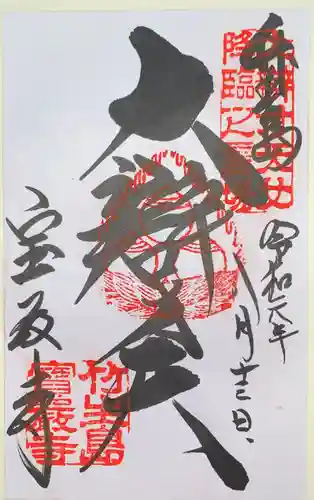 竹生島
降臨之
令和元年
月十三日
大辯才天
宝厳寺
竹生島
寶厳寺